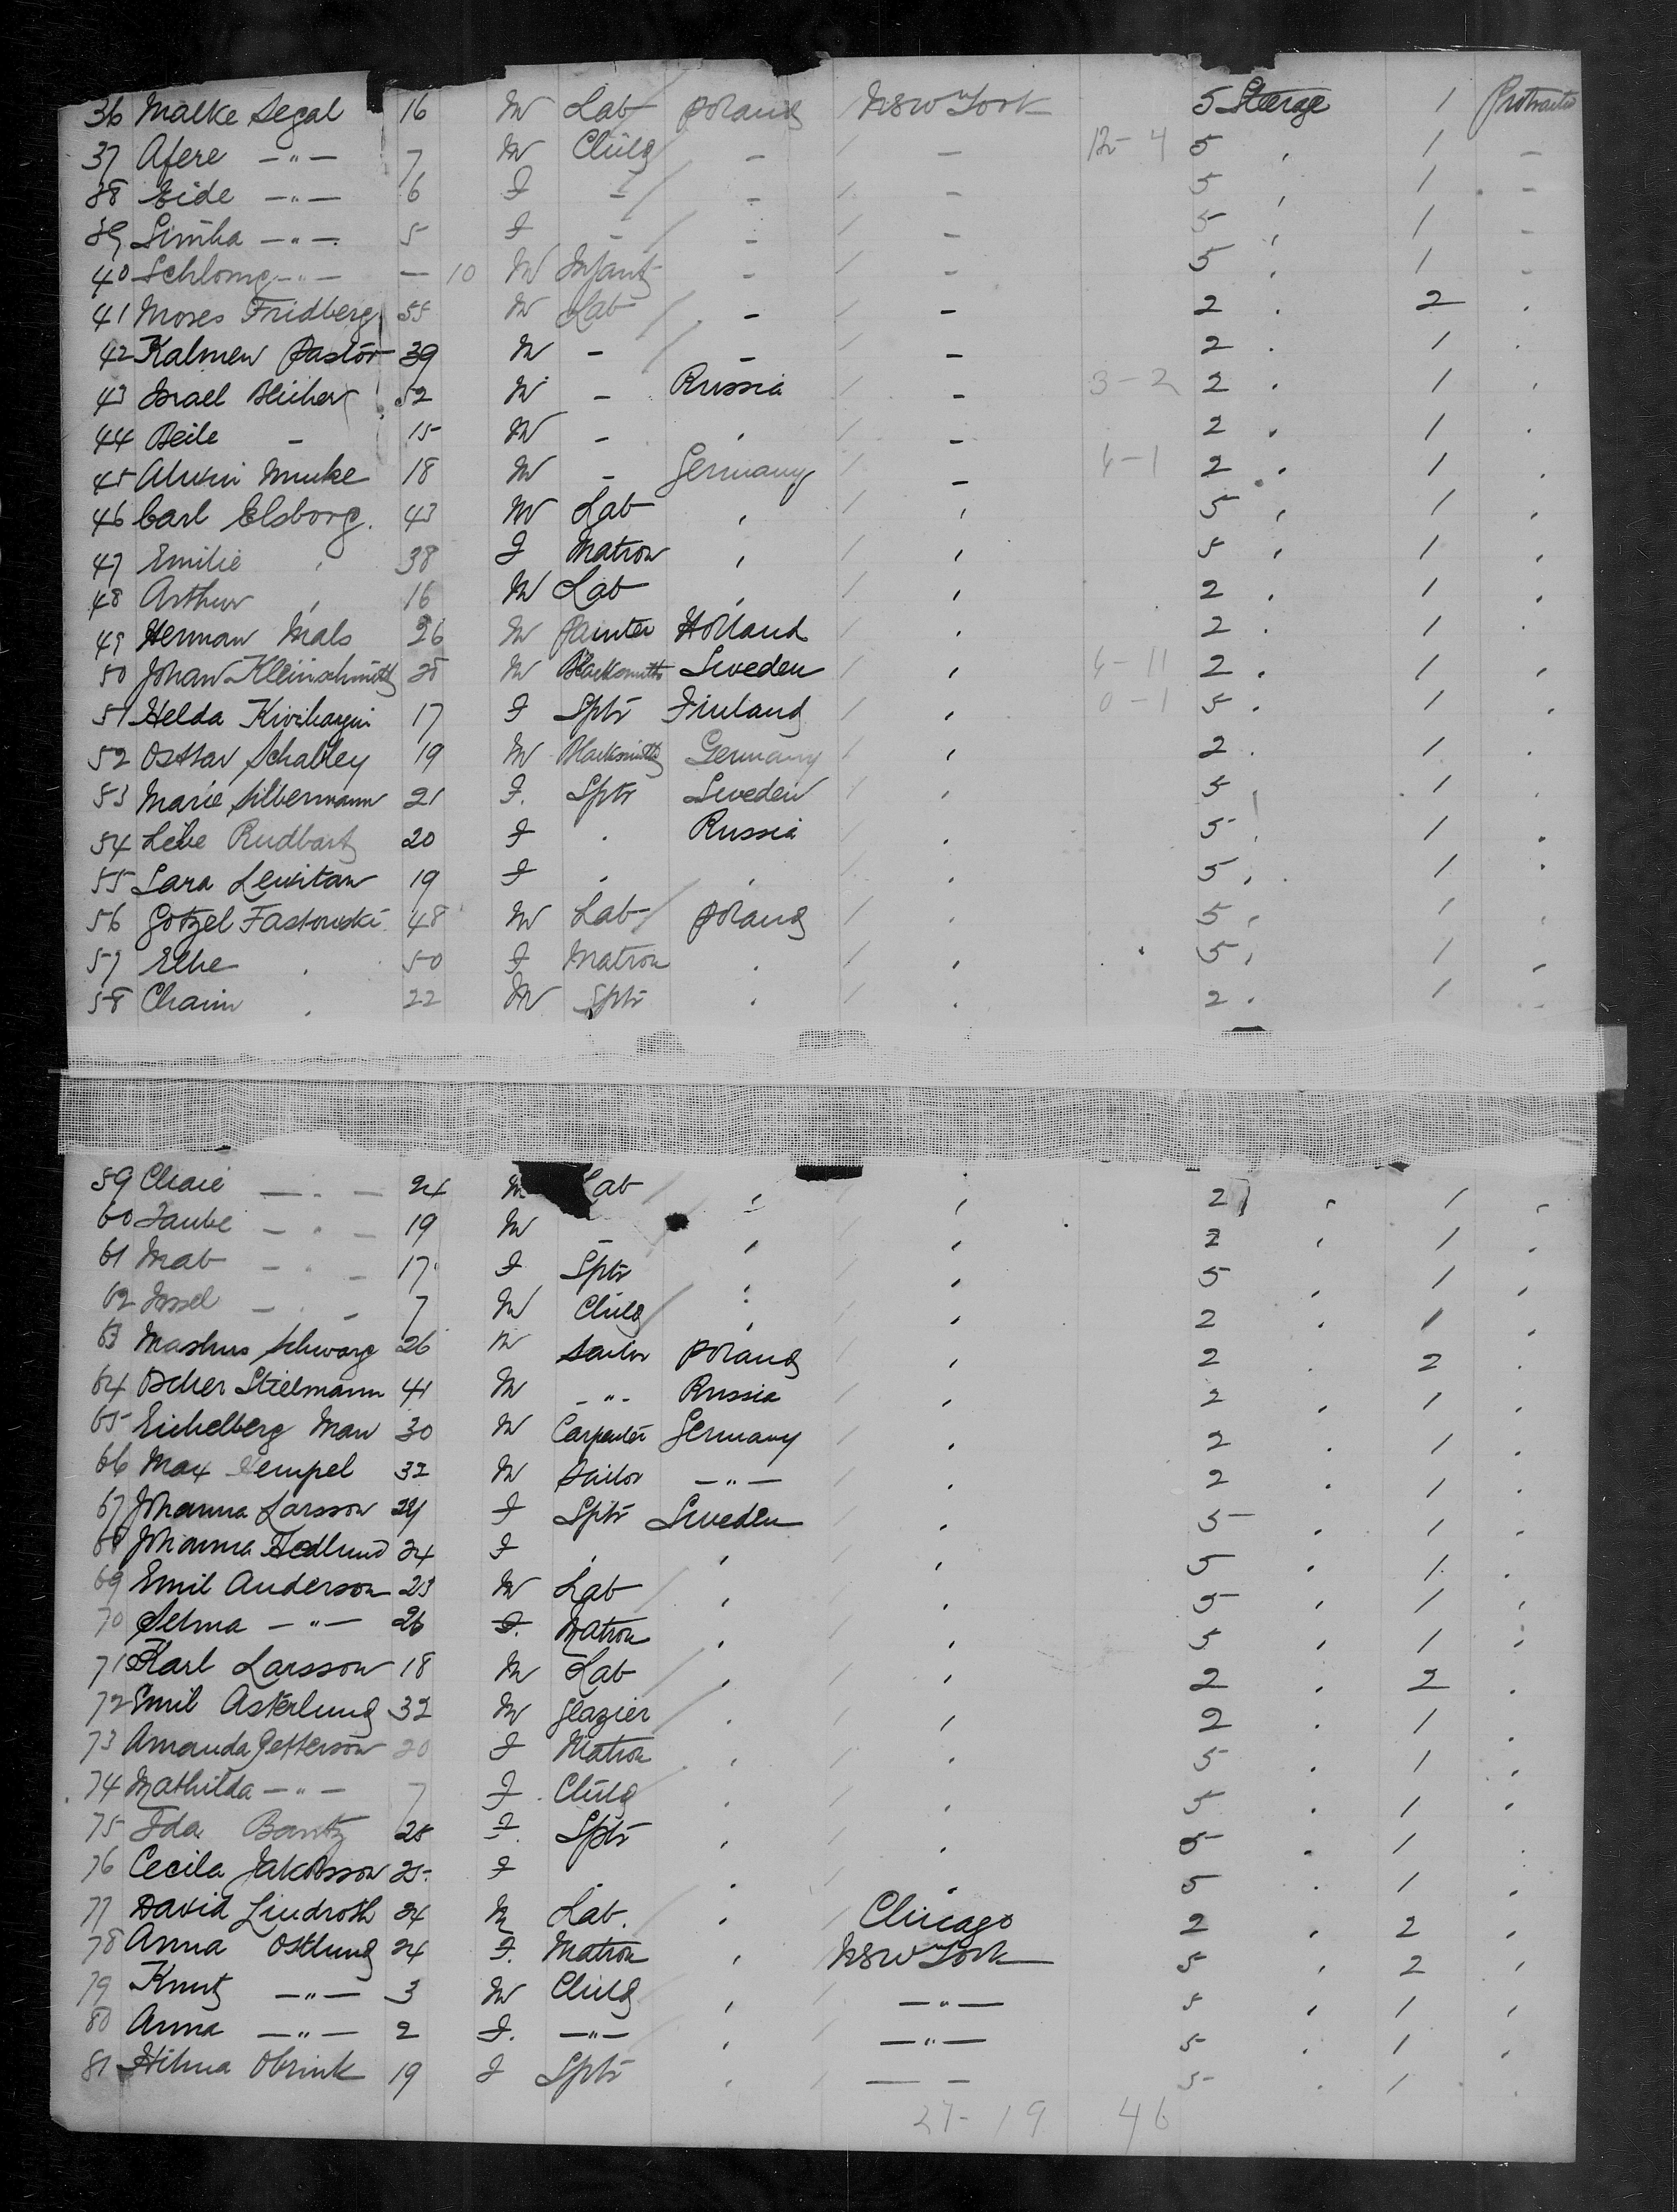 36 Malke Segal 16 M Lab Poland New York 5 Steerage 1 Protracted
37 Afere —"— 7 M Child - / - 12-4 5 , 1 -
38 Eide —"— 6 F - - / - 5 , 1 -
39 Simha —"— 5 F - - / - 5 , 1 -
40 Schlome —"— — 10 M Infant - / - 5 , 1 -
41 Moses Fridberg 55 M Lab - / - 2 . 2 .
42 Kalmen Pastor 39 M - - - 2 . 1 .
43 Israel Blicher 52 M - Russia / - 3-2 2 . 1 .
44 Beile - 15 M - , / - 2 . 1 .
45 Munke 18 M - Germany / - 4-1 2 . 1 .
46 Carl Elsborg. 43 M Lab , / , 5 , 1 ,
47 Emilie , 38 F Matron , / , 5 , 1 ,
48 Arthur , 16 M Lab , / , 2 . 1 .
49 Herman Mals 26 M Painter Holland / . 2 . 1 .
50 Johan Kleinschmidt M Blacksmith Sweden / , 4-11 2 . 1 ,
51 Helda 17 F Sptr Finland / , 0-1 5 . 1 .
52 Osthar Schalley 19 M Blacksmith Germany / , 2 . 1 .
53 Marie Silbermann 21 F. Sptr Sweden / , 5 , 1 .
54 Leibe Rudbart 20 F . Russia / . 5 , 1 .
55 Sara Lewitan 19 F . . / . 5 , 1 .
56 Gotzel Fastowski 48 M Lab Poland / . 5 , 1 .
57 Elke . 50 F Matron . / , 5 , 1 -
58 Chaim . 22 M Sptr . / . 2 . 1 -
59 Chaie —"— 24 M Lab , / , 2 , 1 ,
60 Taube —"— 19 M - , / , 2 , 1 .
61 Mab —"— 17 F Sptr , / , 5 , 1 ,
62 Jossel —"— 7 M Child , / , 2 . 1 ,
63 Schwarz 26 M Sailor Poland / , 2 . 2 .
64 Oscher Stielmann 41 M —"— Russia / , 2 , 1 .
65 Eichelberg Man 30 M Carpenter Germany / . 2 . 1 .
66 Max Tempel 32 M Sailor —"— / . 2 . 1 .
67 Johanna Larsson 24 F Sptr Sweden / . 5 . 1 .
68 Johanna Hedlund 24 F , , / , 5 . 1 .
69 Emil Anderson 23 M Lab , / . 5 , 1 ,
70 Selma —"— 26 F. Matron , / , 5 , 1 ,
71 Karl Larsson 18 M Lab , / , 2 , 2 .
72 Emil Asterlund 32 M Glazier . / , 2 . 1 .
73 Amanda Petterson 20 F Matron . / . 5 . 1 ,
74 Mathilda —"— 7 F. Child . / . 5 . 1 .
75 Ida Bantz 28 F. Sptr , / . 5 . 1 .
76 Cecila Jakobsson 25 F . . / . 5 . 1 .
77 David Lindroth 24 M Lab. . / Chicago 2 , 2 ,
78 Anna Ostlund 24 F. Matron , / New York 5 , 2 ,
79 Knut —"— 3 M Child , / —"— 5 , 1 ,
80 Anna —"— 2 F. —"— , / —"— 5 . 1 .
81 Hilma Obrink 19 F Sptr , / — — 5 . 1 .
27-19 46